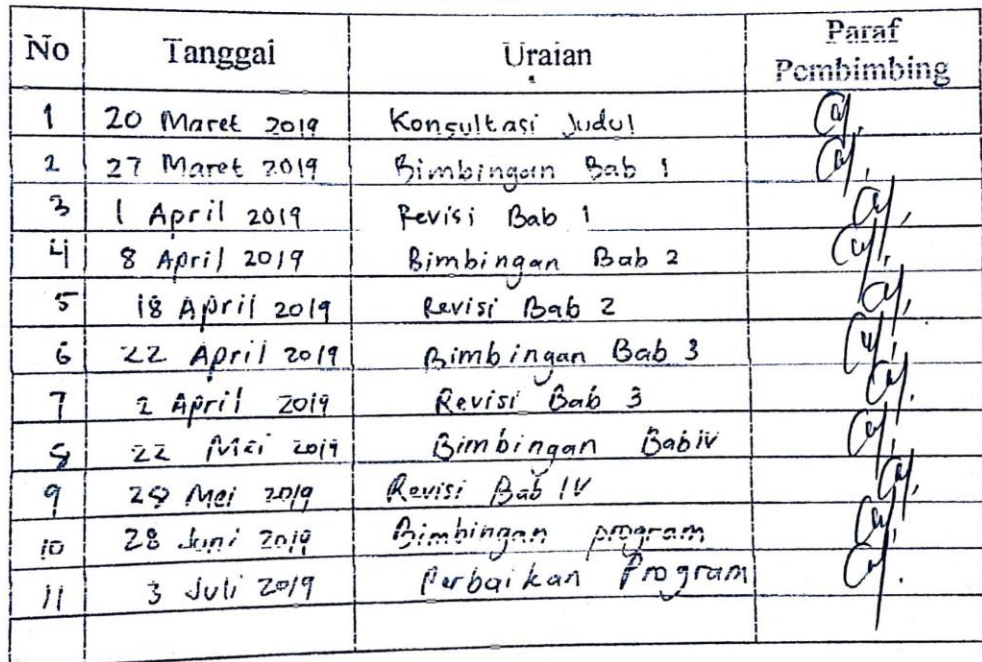 No Tanggal Uraian Paraf Pembimbing
1 20 Maret 2019 Konsultasi Judul
2 27 Maret 2019 Bimbingan Bab 1
3 1 April 2019 Revisi Bab 1
4 8 April 2019 Bimbingan Bab 2
5 18 April 2019 Revisi Bab 2
6 22 April 2019 Bimbingan Bab 3
7 2 April 2019 Revisi Bab 3
8 22 Mei 2019 Bimbingan Bab IV
9 Mei 2019 Revisi Bab IV
10 28 Juni 2019 Bimbingan program
11 3 Juli 2019 Perbaikan Program